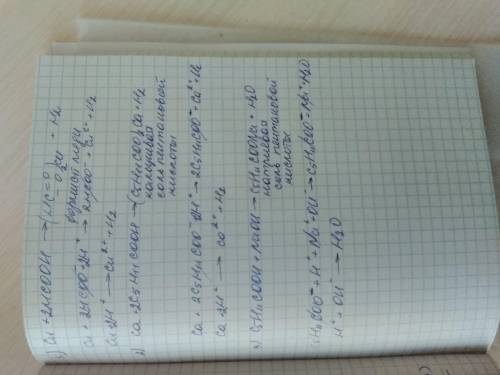 1) Cu + 2HCOOH → (H-C=O-O)2Cu + H2
формиат меди
Cu + 2HCOO⁻ 2H⁺ → 2HCOO⁻ + Cu²⁺ + H2
Cu 2H⁺ → Cu²⁺ + H2
2) Ca + 2C5H11COOH → (C5H11COO)2Ca + H2
кальциевая
соль пентановой
кислоты
Ca + 2C5H11COO⁻ 2H⁺ → 2C5H11COO⁻ + Ca²⁺ + H2
Ca 2H⁺ → Ca²⁺ + H2
3) C5H11COOH + NaOH → C5H11COONa + H2O
натриевая
соль пентановой
кислоты
C5H11COO⁻ + H⁺ + Na⁺ + OH⁻ → C5H11COO⁻ + Na⁺ + H2O
H⁺ + OH⁻ → H2O